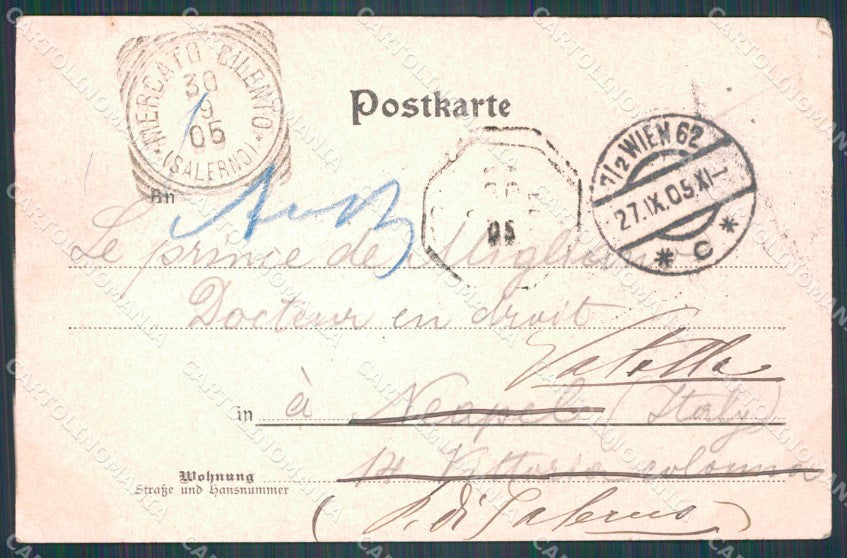 MERCATO CILENTO
30
9
05
(SALERNO)
Postkarte
7/2 WIEN 62
27.IX.05.XI-
* C *
05
An
Le prince de Migliano
Docteur en droit
Vatolla
in à Neapel (Italy)
Wohnung
Straße und Hausnummer
14 Vittoria colonna
(P. di Salerno)
CARTOLINOMANIA